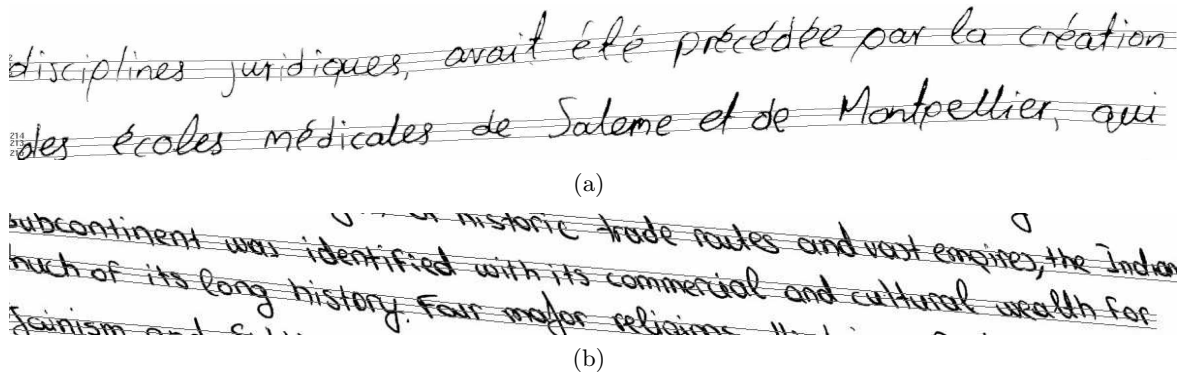 disciplines juridiques, avait été précédée par la création
214
des écoles médicales de Salerne et de Montpellier, qui
(a)
historic trade routes and vast empires, the Indian
subcontinent was identified with its commercial and cultural wealth for
much of its long history. Four major religions
Jainism and
(b)